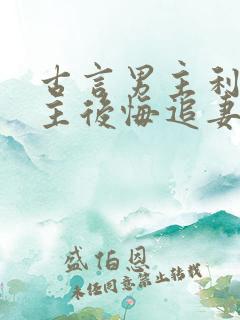 古言男主利
主後悔追妻
盛伯恩
未经同意禁止转载